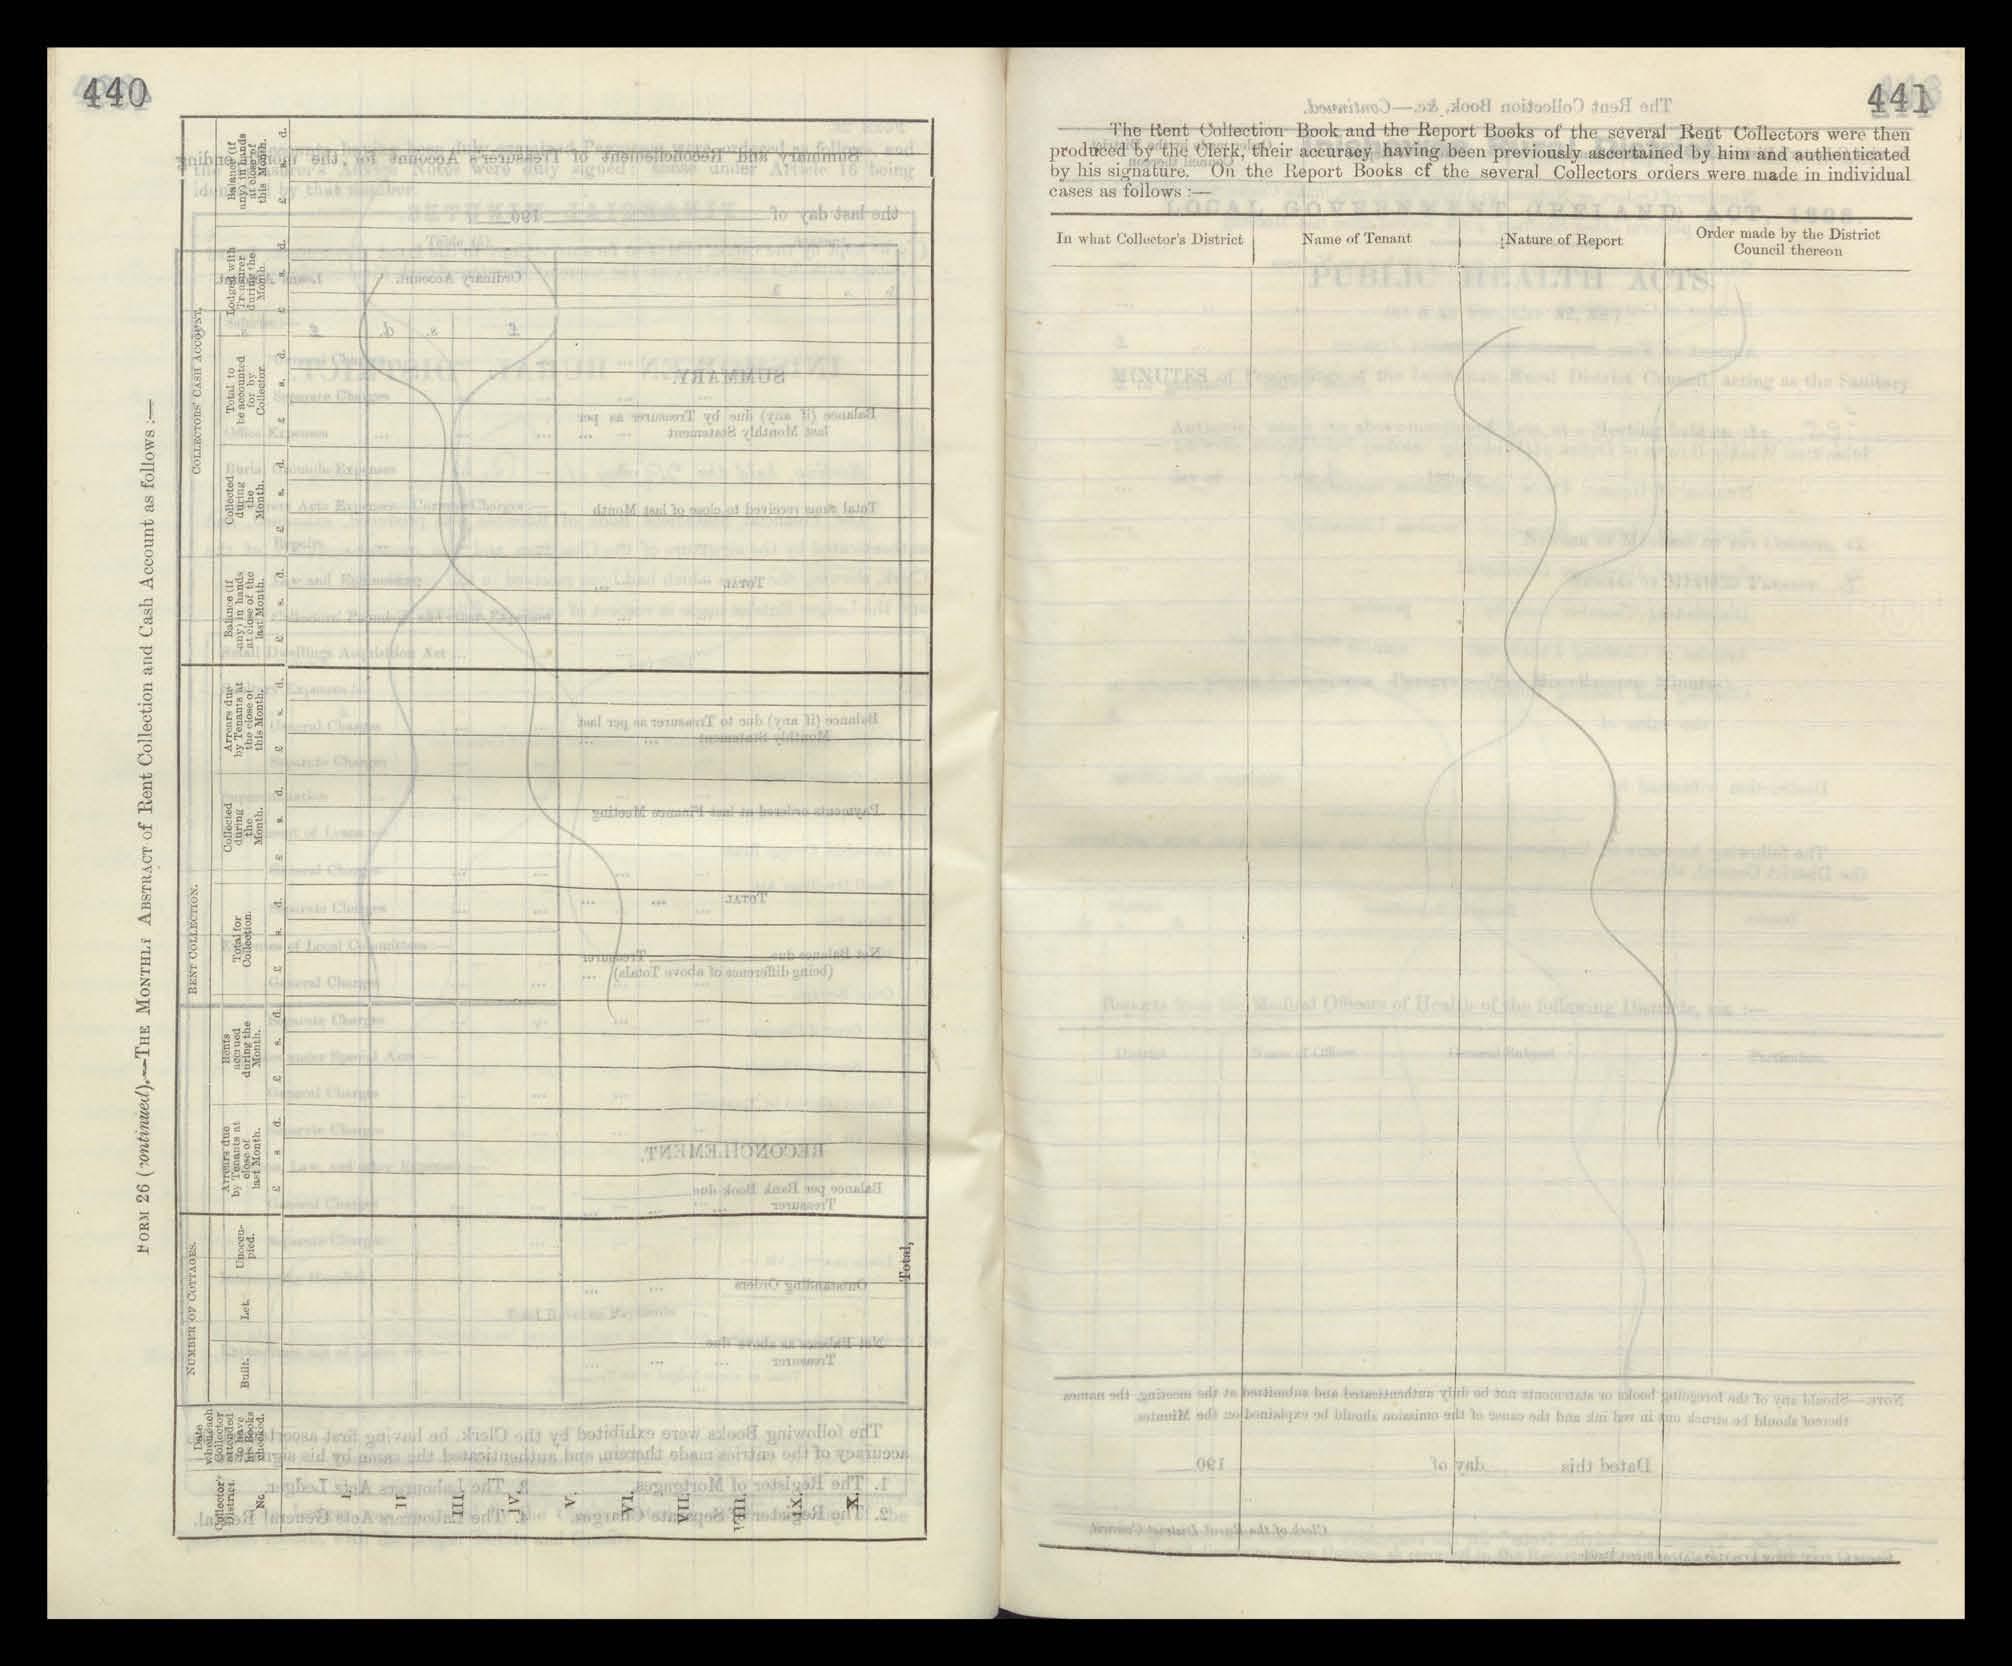 440
FORM 26 (continued).—THE MONTHLY ABSTRACT of Rent Collection and Cash Account as follows :—
Collector's District. No.
Date when each Collector attended to have his Books checked.
NUMBER OF COTTAGES.
Built.
Let.
Unoccupied.
RENT COLLECTION.
Arrears due by Tenants at close of last Month.
£ s. d.
Rents accrued during the Month.
£ s. d.
Total for Collection.
£ s. d.
Collected during the Month.
£ s. d.
Arrears due by Tenants at the close of this Month.
£ s. d.
COLLECTORS' CASH ACCOUNT.
Balance (if any) in hands at close of the last Month.
£ s. d.
Collected during the Month.
£ s. d.
Total to be accounted for by Collector.
£ s. d.
Lodged with Treasurer during the Month.
£ s. d.
Balance (if any) in hands at close of this Month.
£ s. d.
I.
II.
III.
IV.
V.
VI.
VII.
VIII.
IX.
X.
Total,
441
The Rent Collection Book and the Report Books of the several Rent Collectors were then
produced by the Clerk, their accuracy having been previously ascertained by him and authenticated
by his signature. On the Report Books of the several Collectors orders were made in individual
cases as follows :—
In what Collector's District
Name of Tenant
Nature of Report
Order made by the District
Council thereon